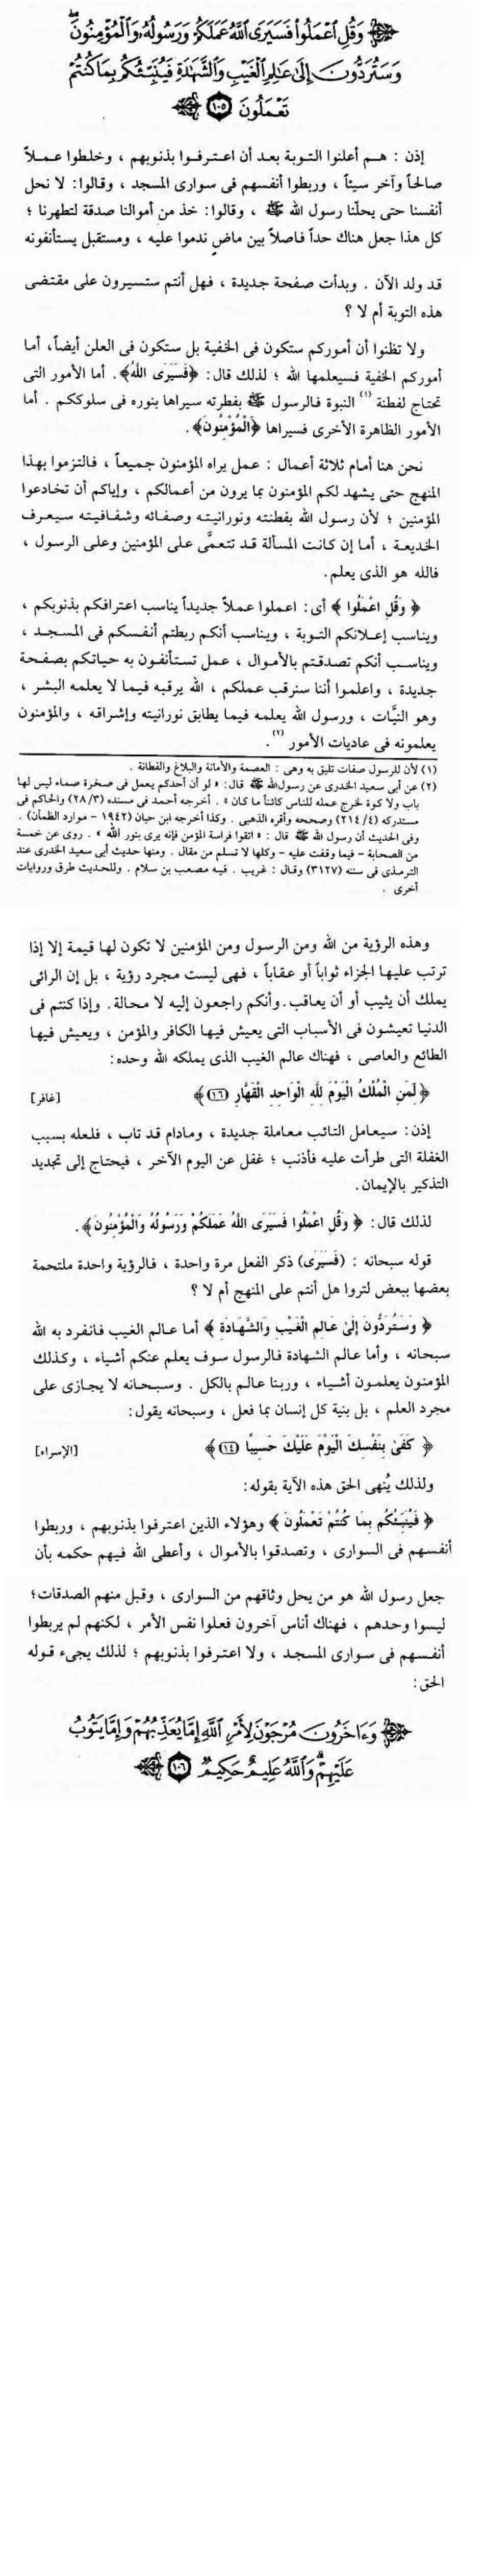 وَقُلِ ٱعْمَلُوا۟ فَسَيَرَى ٱللَّهُ عَمَلَكُمْ وَرَسُولُهُۥ وَٱلْمُؤْمِنُونَ ۖ
وَسَتُرَدُّونَ إِلَىٰ عَـٰلِمِ ٱلْغَيْبِ وَٱلشَّهَـٰدَةِ فَيُنَبِّئُكُم بِمَا كُنتُمْ
تَعْمَلُونَ ١٠٥
إذن : هـم أعلنوا التوبة بعد أن اعترفوا بذنوبهم ، وخلطوا عملاً
صالحاً وآخر سيئاً ، وربطوا أنفسهم فى سوارى المسجد ، وقالوا: لا نحل
أنفسنا حتى يحلّنا رسول الله ﷺ ، وقالوا: خذ من أموالنا صدقة لتطهرنا ؛
كل هذا جعل هناك حداً فاصلاً بين ماضٍ ندموا عليه ، ومستقبل يستأنفونه
قد ولد الآن . وبدأت صفحة جديدة ، فهل أنتم ستسيرون على مقتضى
هذه التوبة أم لا ؟
ولا تظنوا أن أموركم ستكون فى الخفية بل ستكون فى العلن أيضاً، أما
أموركم الخفية فسيعلمها الله ؛ لذلك قال: ﴿فَسَيَرَى اللَّهُ﴾. أما الأمور التى
تحتاج لفطنة (١) النبوة فالرسول ﷺ بفطرته سيراها بنوره فى سلوككم . أما
الأمور الظاهرة الأخرى فسيراها ﴿الْمُؤْمِنُونَ﴾.
نحن هنا أمام ثلاثة أعمال : عمل يراه المؤمنون جميعاً ، فالتزموا بهذا
المنهج حتى يشهد لكم المؤمنون بما يرون من أعمالكم ، وإياكم أن تخادعوا
المؤمنين ؛ لأن رسول الله بفطنته ونورانيته وصفائه وشفافيته سيعرف
الخديعة ، أما إن كانت المسألة قد تتعمَّى على المؤمنين وعلى الرسول ،
فالله هو الذى يعلم.
﴿ وَقُلِ اعْمَلُوا ﴾ أى: اعملوا عملاً جديداً يناسب اعترافكم بذنوبكم ،
ويناسب إعلانكم التوبة ، ويناسب أنكم ربطتم أنفسكم فى المسجد ،
ويناسب أنكم تصدقتم بالأموال ، عمل تستأنفون به حياتكم بصفحة
جديدة ، واعلموا أننا سنرقب عملكم ، الله يرقبه فيما لا يعلمه البشر ،
وهو النيَّات ، ورسول الله يعلمه فيما يطابق نورانيته وإشراقه ، والمؤمنون
يعلمونه فى عاديات الأمور (٢).
(١) لأن للرسول صفات تليق به وهى : العصمة والأمانة والبلاغ والفطانة .
(٢) عن أبى سعيد الخدرى عن رسول الله ﷺ قال: « لو أن أحدكم يعمل فى صخرة صماء ليس لها
باب ولا كوة لخرج عمله للناس كائناً ما كان » . أخرجه أحمد فى مسنده (٢٨/٣) والحاكم فى
مستدركه (٢١٤/٤) وصححه وأقره الذهبى . وكذا أخرجه ابن حبان (١٩٤٢ - موارد الظمآن) .
وفى الحديث أن رسول الله ﷺ قال : « اتقوا فراسة المؤمن فإنه يرى بنور الله » . روى عن خمسة
من الصحابة - فيما وقفت عليه - وكلها لا تسلم من مقال . ومنها حديث أبى سعيد الخدرى عند
الترمذى فى سننه (٣١٢٧) وقال : غريب . فيه مصعب بن سلام . وللحديث طرق وروايات
أخرى .
وهذه الرؤية من الله ومن الرسول ومن المؤمنين لا تكون لها قيمة إلا إذا
ترتب عليها الجزاء ثواباً أو عقاباً ، فهى ليست مجرد رؤية ، بل إن الرائى
يملك أن يثيب أو أن يعاقب. وأنكم راجعون إليه لا محالة. وإذا كنتم فى
الدنيا تعيشون فى الأسباب التى يعيش فيها الكافر والمؤمن ، ويعيش فيها
الطائع والعاصى ، فهناك عالم الغيب الذى يملكه الله وحده:
﴿ لِّمَنِ الْمُلْكُ الْيَوْمَ لِلَّهِ الْوَاحِدِ الْقَهَّارِ (١٦)﴾ [غافر]
إذن: سيعامل التائب معاملة جديدة ، ومادام قد تاب ، فلعله بسبب
الغفلة التى طرأت عليه فأذنب ؛ غفل عن اليوم الآخر ، فيحتاج إلى تجديد
التذكير بالإيمان.
لذلك قال: ﴿ وَقُلِ اعْمَلُوا فَسَيَرَى اللَّهُ عَمَلَكُمْ وَرَسُولُهُ وَالْمُؤْمِنُونَ﴾.
قوله سبحانه : (فَسَيَرَى) ذكر الفعل مرة واحدة ، فالرؤية واحدة ملتحمة
بعضها ببعض لتروا هل أنتم على المنهج أم لا ؟
﴿ وَسَتُرَدُّونَ إِلَىٰ عَالِمِ الْغَيْبِ وَالشَّهَادَةِ ﴾ أما عالم الغيب فانفرد به الله
سبحانه ، وأما عالم الشهادة فالرسول سوف يعلم عنكم أشياء ، وكذلك
المؤمنون يعلمون أشياء ، وربنا عالم بالكل . وسبحانه لا يجازى على
مجرد العلم ، بل بنية كل إنسان بما فعل ، وسبحانه يقول:
﴿ كَفَىٰ بِنَفْسِكَ الْيَوْمَ عَلَيْكَ حَسِيبًا (١٤)﴾ [الإسراء]
ولذلك يُنهى الحق هذه الآية بقوله:
﴿ فَيُنَبِّئُكُم بِمَا كُنتُمْ تَعْمَلُونَ ﴾ وهؤلاء الذين اعترفوا بذنوبهم ، وربطوا
أنفسهم فى السوارى ، وتصدقوا بالأموال ، وأعطى الله فيهم حكمه بأن
جعل رسول الله هو من يحل وثاقهم من السوارى ، وقبل منهم الصدقات؛
ليسوا وحدهم ، فهناك أناس آخرون فعلوا نفس الأمر ، لكنهم لم يربطوا
أنفسهم فى سوارى المسجد ، ولا اعترفوا بذنوبهم ؛ لذلك يجىء قوله
الحق:
وَءَاخَرُونَ مُرْجَوْنَ لِأَمْرِ ٱللَّهِ إِمَّا يُعَذِّبُهُمْ وَإِمَّا يَتُوبُ
عَلَيْهِمْ ۗ وَٱللَّهُ عَلِيمٌ حَكِيمٌ ١٠٦